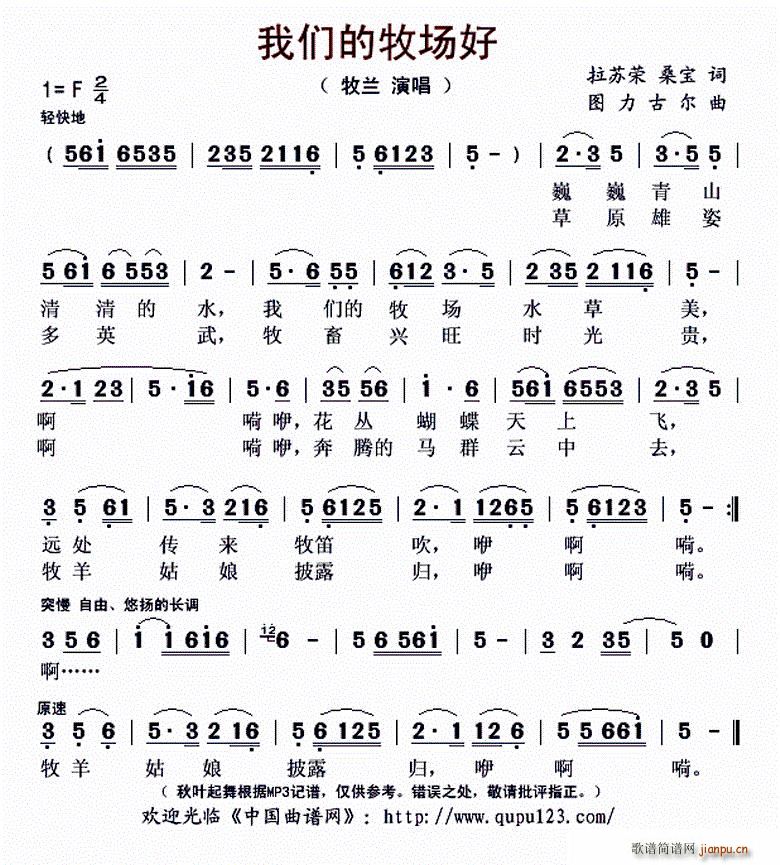 我们的牧场好
1=F 2/4
（ 牧兰 演唱 ）
拉苏荣 桑宝 词
图 力 古 尔 曲
轻快地
( 561 6535 | 235 2116 | 5 6123 | 5 - ) | 2·3 5 | 3·5 5 |
巍 巍 青 山
草 原 雄 姿
5 61 6 553 | 2 - | 5·6 55 | 612 3·5 | 2 35 2 116 | 5 - |
清 清 的 水，我 们 的 牧 场 水 草 美，
多 英 武，牧 畜 兴 旺 时 光 贵，
2·1 23 | 5·16 | 5·6 | 35 56 | 1·6 | 561 6553 | 2·3 5 |
啊 嗬 咿，花 丛 蝴 蝶 天 上 飞，
啊 嗬 咿，奔 腾 的 马 群 云 中 去，
3 5 61 | 5·3 216 | 5 6125 | 2·1 1265 | 5 6123 | 5 - :‖
远 处 传 来 牧 笛 吹，咿 啊 嗬。
牧 羊 姑 娘 披 露 归，咿 啊 嗬。
突慢 自由、悠扬的长调
3 5 6 | 1 1 616 | 12 6 - | 5 6 561 | 5 - | 3 2 35 | 5 0 |
啊……
原速
3 5 6 | 5·3 2 16 | 5 6 125 | 2·1 12 6 | 5 5 661 | 5 - ‖
牧 羊 姑 娘 披露 归，咿 啊 嗬。
（ 秋叶起舞根据MP3记谱，仅供参考。错误之处，敬请批评指正。）
欢迎光临《中国曲谱网》：http://www.qupu123.com/
歌谱简谱网
jianpu.cn